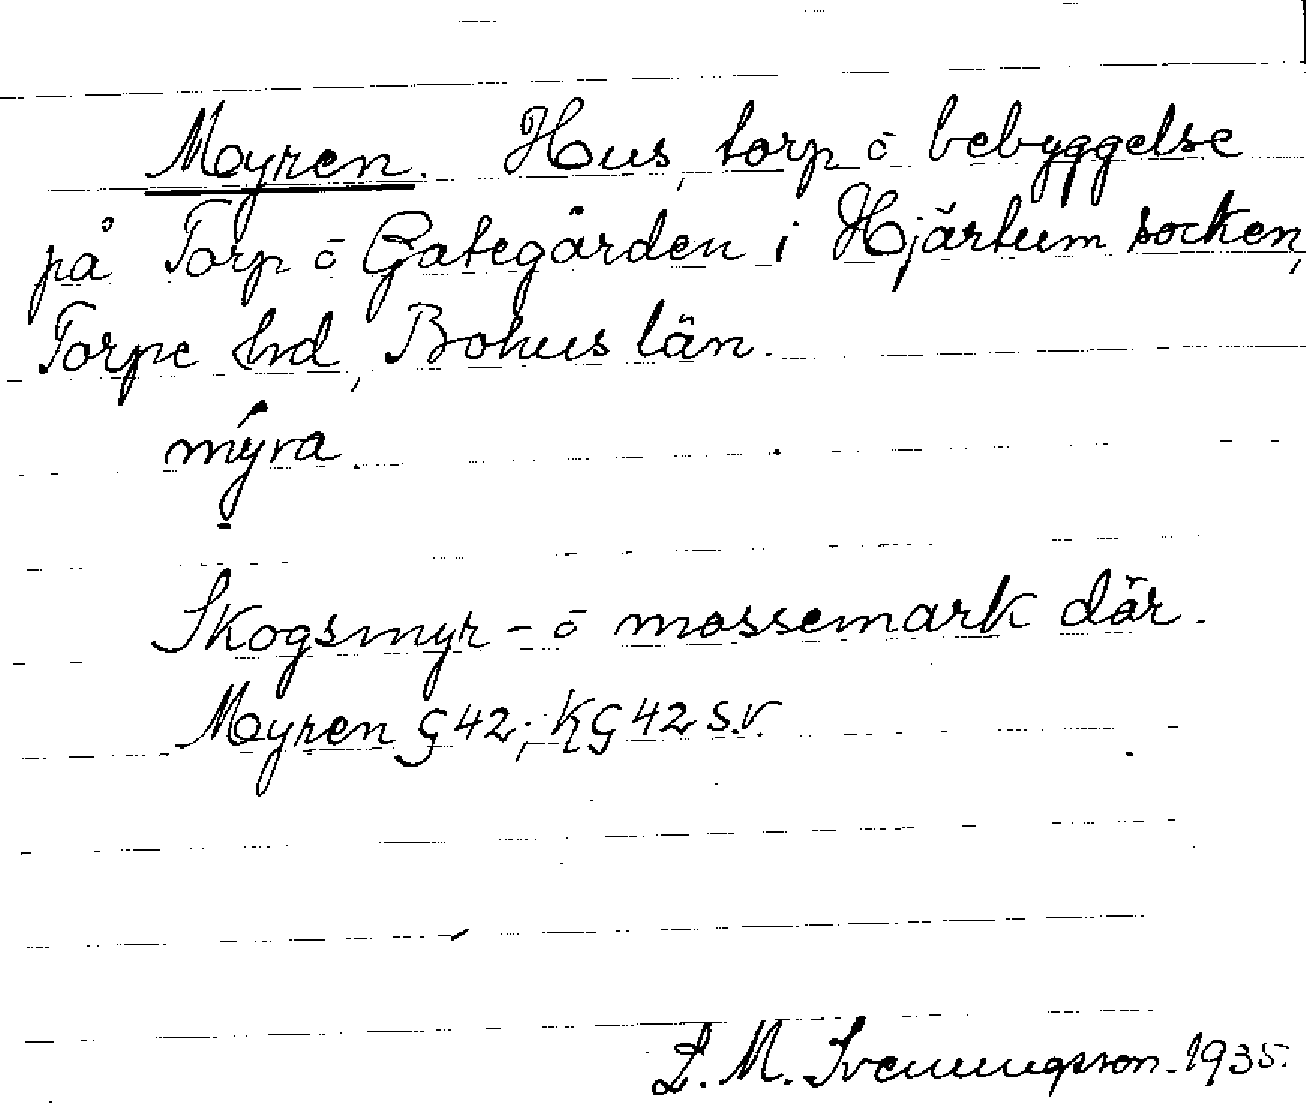 Myren. Hus, torp ō bebyggelse
på Torp ō Gategården i Hjärtum socken,
Torpe hrd, Bohus län.
mýra
Skogsmyr- ō mossemark där.
Myren G 42; KG 42 s.v.
L. M. Svenungsson. 1935.